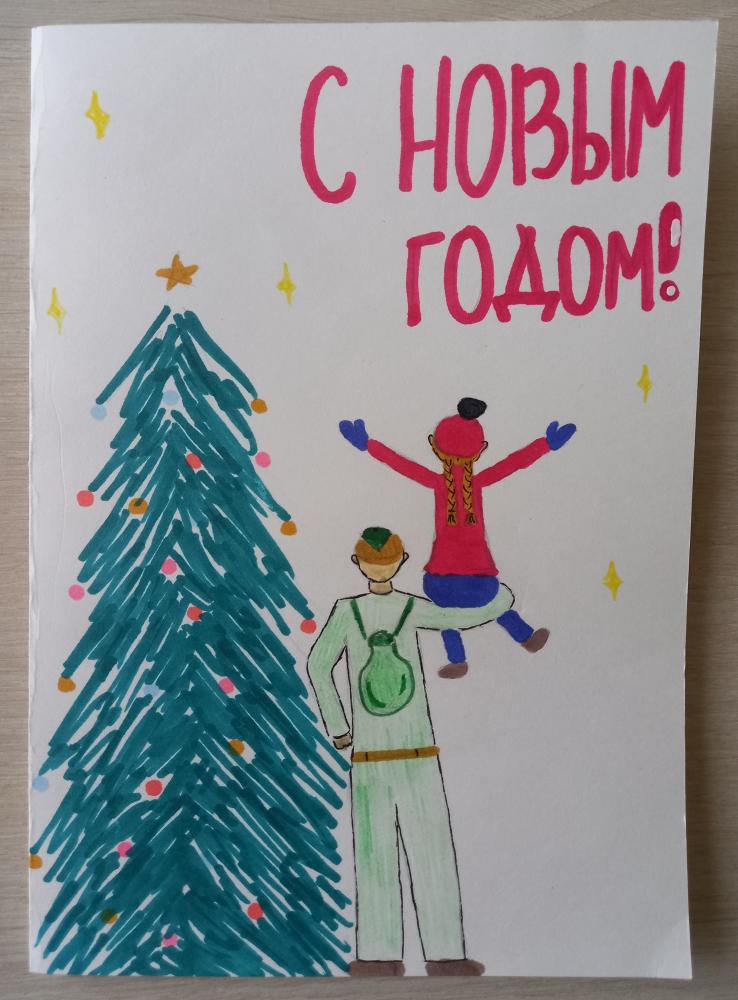 С НОВЫМ
ГОДОМ!